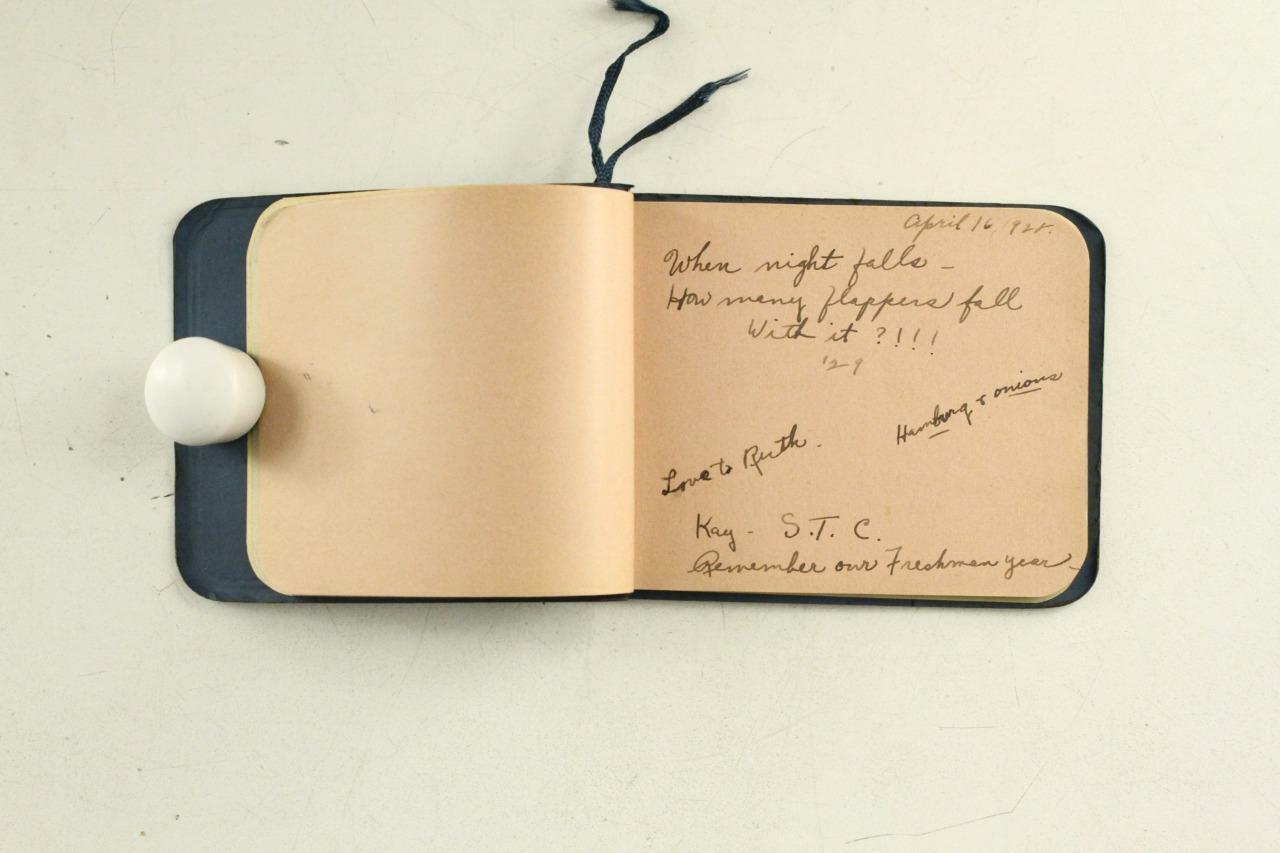 April 16, 192
When night falls –
How many flappers fall
With it ?!!!
'29
Hamburg & onions
Love to Ruth.
Kay - S.T.C.
Remember our Freshman year